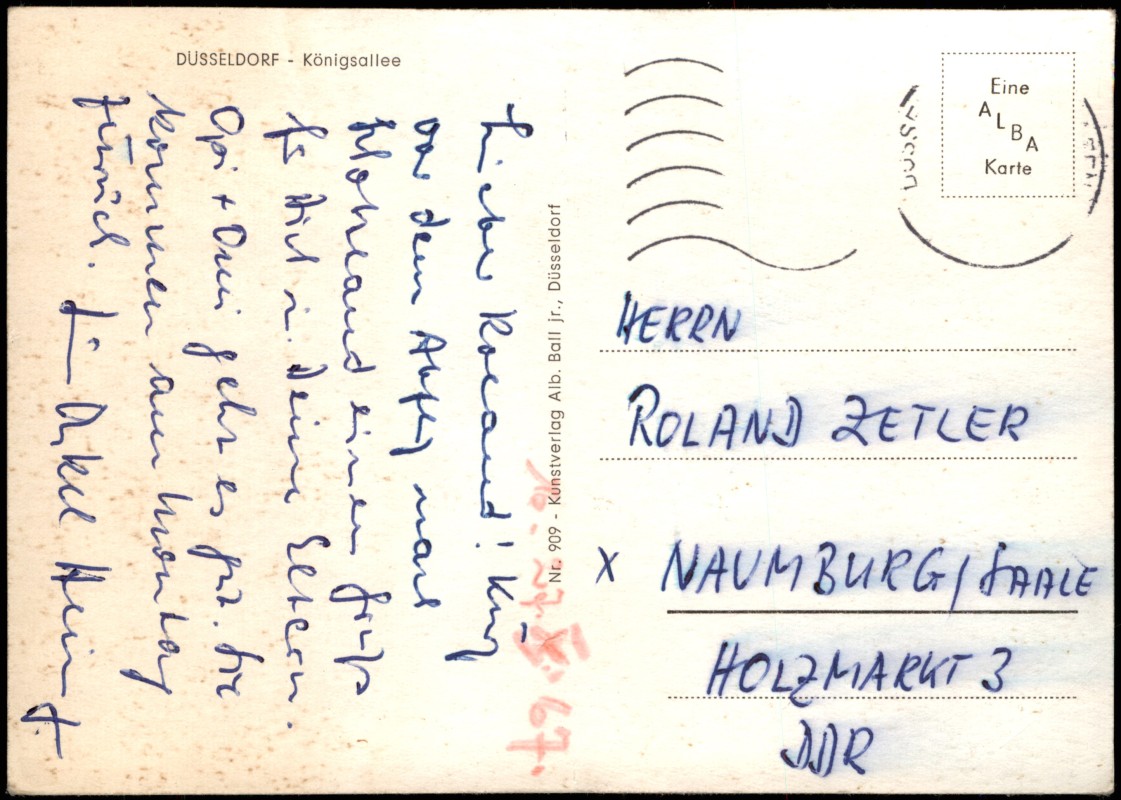 DÜSSELDORF - Königsallee
Lieber Roland! Kurz
vor dem Abflug nach
Holland einen Gruß
Dich u. Deine Eltern.
Opi + Omi geht es gut. Sie
kommen am Montag
zurück.
Onkel
Nr. 909 - Kunstverlag Alb. Ball jr., Düsseldorf
Eine
ALBA
Karte
HERRN
ROLAND ZETLER
X NAUMBURG/SAALE
HOLZMARKT 3
DDR